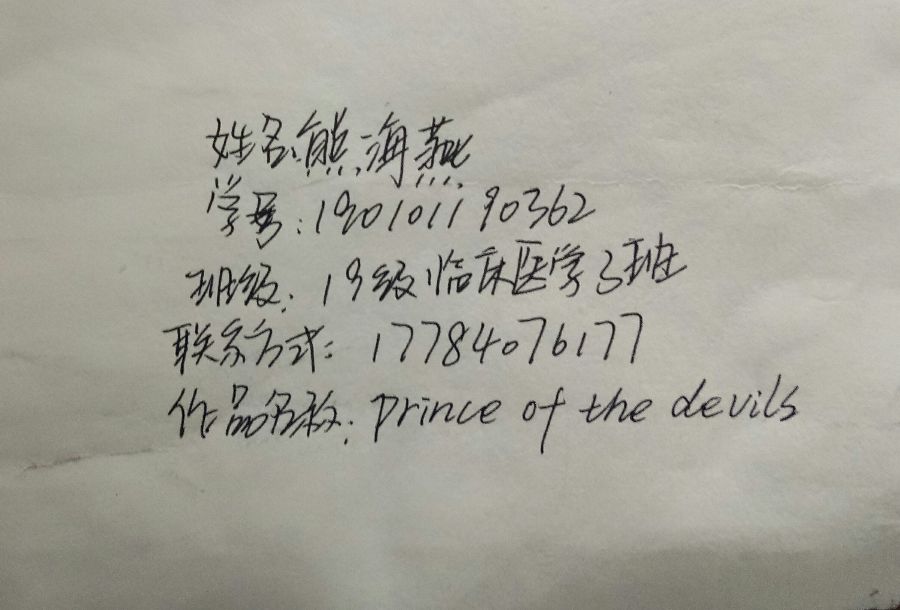 姓名:熊海燕
学号:190101190362
班级:19级临床医学3班
联系方式:17784076177
作品名称:prince of the devils